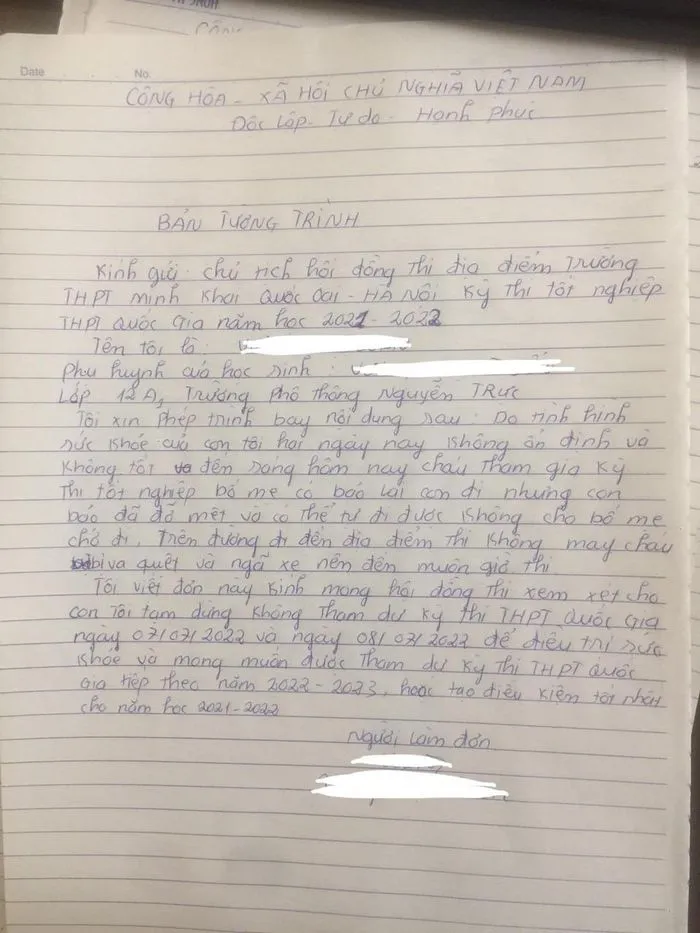 CÔNG
Date
No.
CÔNG HÒA - XÃ HỘI CHỦ NGHĨA VIỆT NAM
Độc Lập - Tự do - Hạnh phúc
BẢN TƯỜNG TRÌNH
Kính gửi: chủ tịch hội đồng thi địa điểm Trường
THPT minh Khai Quốc Oai - HÀ NỘI Kỳ thi tốt nghiệp
THPT Quốc Gia năm học 2021 - 2022
Tên tôi là:
Phụ huynh của học sinh:
Lớp 12A, Trường Phổ thông Nguyễn TRực
Tôi xin phép trình bày nội dung sau: Do tình hình
sức khỏe của con tôi hai ngày nay không ổn định và
không tốt đến sáng hôm nay cháu tham gia kỳ
thi tốt nghiệp bố mẹ có bảo lai con đi nhưng con
bảo đã đỡ mệt và có thể tự đi được không cho bố mẹ
chở đi, Trên đường đi đến địa điểm thi không may cháu
bị va quệt và ngã xe nên đến muộn giờ thi
Tôi viết đơn này kính mong hội đồng thi xem xét cho
con tôi tạm dừng không tham dự kỳ thi THPT Quốc Gia
ngày 07/07/2022 và ngày 08/07/2022 để điều trị sức
khỏe và mong muốn được tham dự kỳ thi THPT Quốc
Gia tiếp theo năm 2022 - 2023, hoặc tạo điều kiện tốt nhất
cho năm học 2021-2022
Người làm đơn